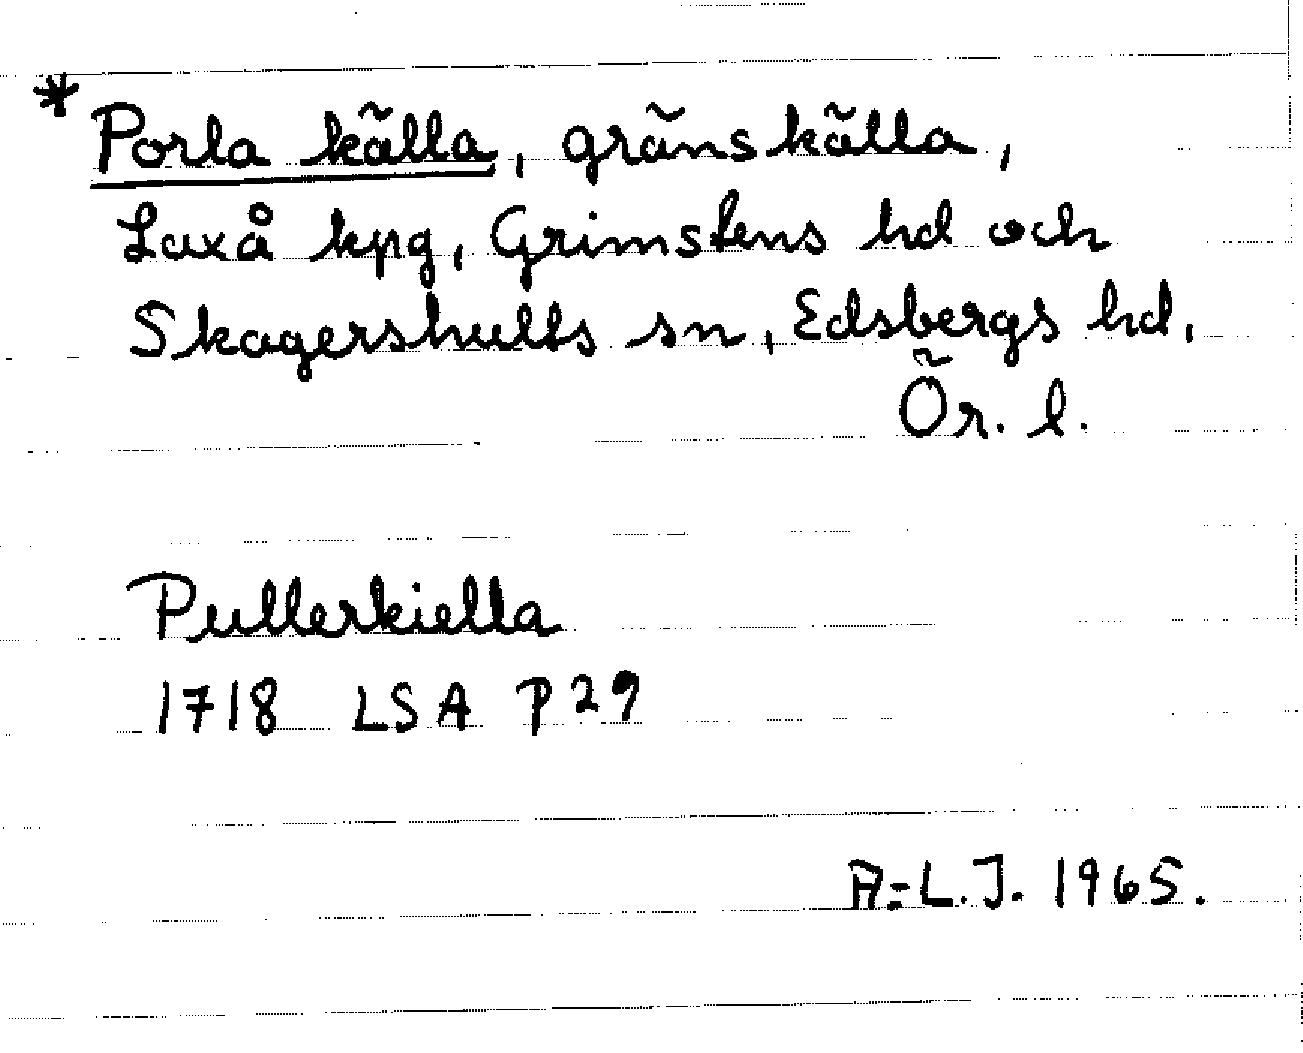 * Porla källa, gränskälla,
Laxå kpg, Grimstens hd och
Skagershults sn, Edsbergs hd,
Ör. l.
Pullerkiella
1718 LSA P29
A-L.J. 1965.